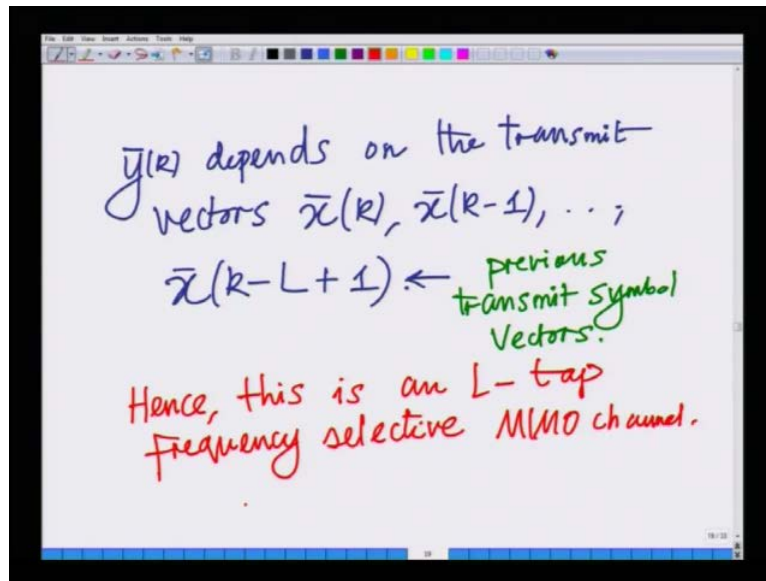 File Edit View Insert Actions Tools Help
ȳ(k) depends on the transmit
vectors x̄(k), x̄(k-1), ..,
x̄(k-L+1). ← previous
transmit symbol
Vectors.
Hence, this is an L-tap
Frequency selective MIMO channel.
19